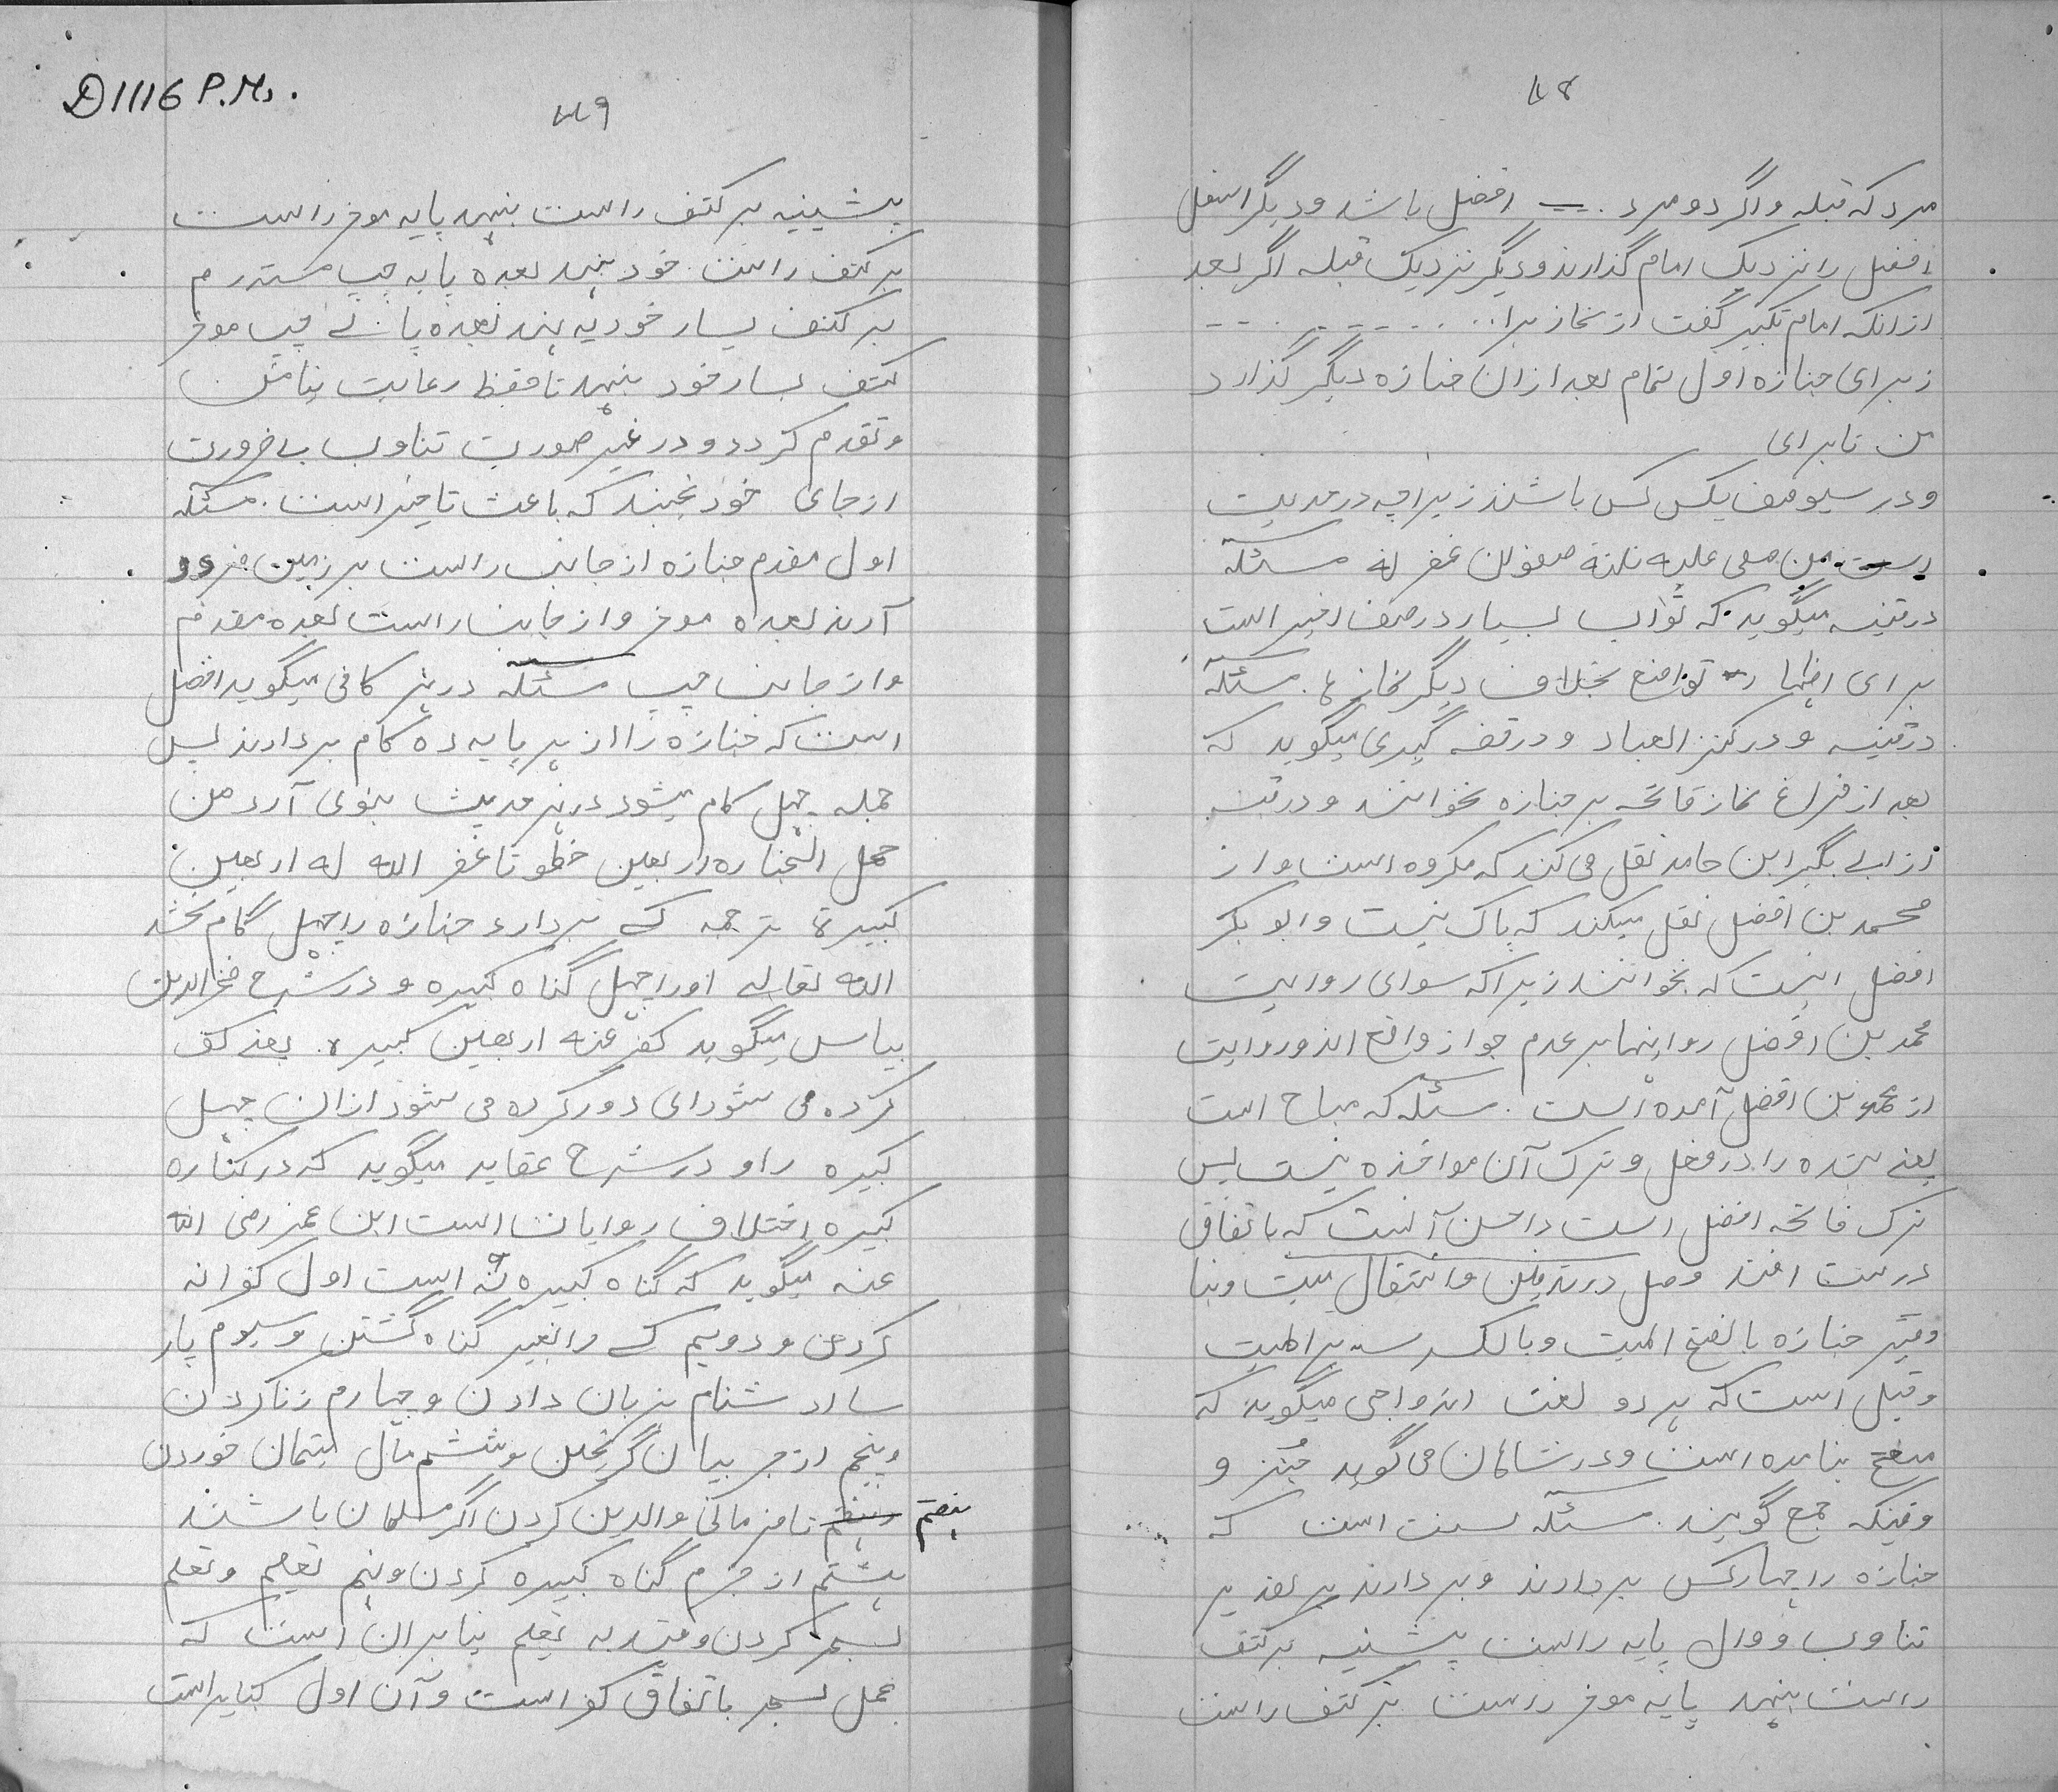 ۴۸
مرد که قبله و اگر دو مرد افضل باشد و دیگر اسفل
افضل را نزدیک امام گذارند و دیگر نزدیک قبله اگر بعد
ازانکه امام تکبیر گفت از نماز برا . . . . . .
زبرای جنازه اول تمام بعد ازان جنازه دیگر گذارد
من تا برای
و در سیوم صف یکس کس باشند زیراچه در حدیث
است من صلی علیه ثلثة صفوف غفر له مسئله
در قنیه میگوید که ثواب بسیار در صف اخیر است
برای اظهار تواضع بخلاف دیگر نمازها. مسئله
در قنیه و در کنز العباد و در قضه گبری میگوید که
بعد از فراغ نماز فاتحه بر جنازه نخوانند و در قنیه
از ابی بگیر ابن حامد نقل می کند که مکروه است و از
محمد بن افضل نقل میکند که باک نیست و ابو بکر
افضل اینست که نخوانند زیراکه سوای روایت
محمد بن افضل روایتها بر عدم جواز واقع اند و روایت
از محمد بن افضل آمده است. مسئله که مباح است
یعنے بنده را در فعل و ترک آن مواخذه نیست پس
ترک فاتحه افضل است و احسن آنست که باتفاق
درست افتد وصل در تدفین و انتقال میت وبنا
وقبر جنازه بالفتح المیت و بالکسر سریر المیت
وقیل است که هر دو لغت اند واجی میگوید که
بفتح نیامده است و در شاهان می گوید جَنَز و
وقتیکه جمع گویند. مسئله سنت است که
جنازه را چهار کس بردارند و بردارند بر تقدیر
تناوب و وال پایه راست پیشینه بر کتف
راست بنهد پایه موخر راست بر کتف راست
D1116 P.M.
۴۹
پیشینیه بر کتف راست بنهد پایه موخر راست
بر کتف راست خود بنهد بعده پایه چپ مستدرم
بر کتف یسار خود بنهد بعده پائے چپ موخر
کتف یسار خود بنهد تا فقط رعایت تیامن
و تقدم کردد و در غیر صورت تناوب بے ضرورت
از جای خود نجنبد که باعث تاخیر است. مسئله
اول مقدم جنازه از جانب راست بر زمین فرود
آرند بعده موخر و از جانب راست بعده مقدم
و از جانب چپ مسئله در نهر کافی میگوید افضل
است که جنازه را از هر پایه ده کام بردارند پس
جمله چهل کام میشود در نهر حدیث بنوی آرد من
حمل الجنازه اربعین خطوتا غفر الله له اربعین
کبیرة ترجمه کسے بردارد جنازه را چهل گام بخشد
الله تعالے اورا چهل گناه کبیره و در شرح فخرالدین
بیاس میگوید کفر عنه اربعین کبیره یعنے کف
کرده می شود ای دور کرده می شود ازان چهل
کبیره را و در شرح عقاید میگوید که در کناره
کبیره اختلاف روایات است ابن عمر رضی الله
عنه میگوید که گناه کبیره نُه است اول کفرانه
کردن و دویم کسے را بغیر گناه کشتن و سیوم پار
سا را دشنام بزبان دادن و چهارم زنا کردن
و پنجم از حربیان گریختن و ششم مال یتیمان خوردن
هفتم نافرمانی والدین کردن اگر مسلمان باشند
هشتم از حرم گناه کبیره کردن و نهم تعلیم و تعلم
سحر کردن و قید به تعلم بنابران است که
عمل سحر باتفاق کفر است و آن اول کبایر است